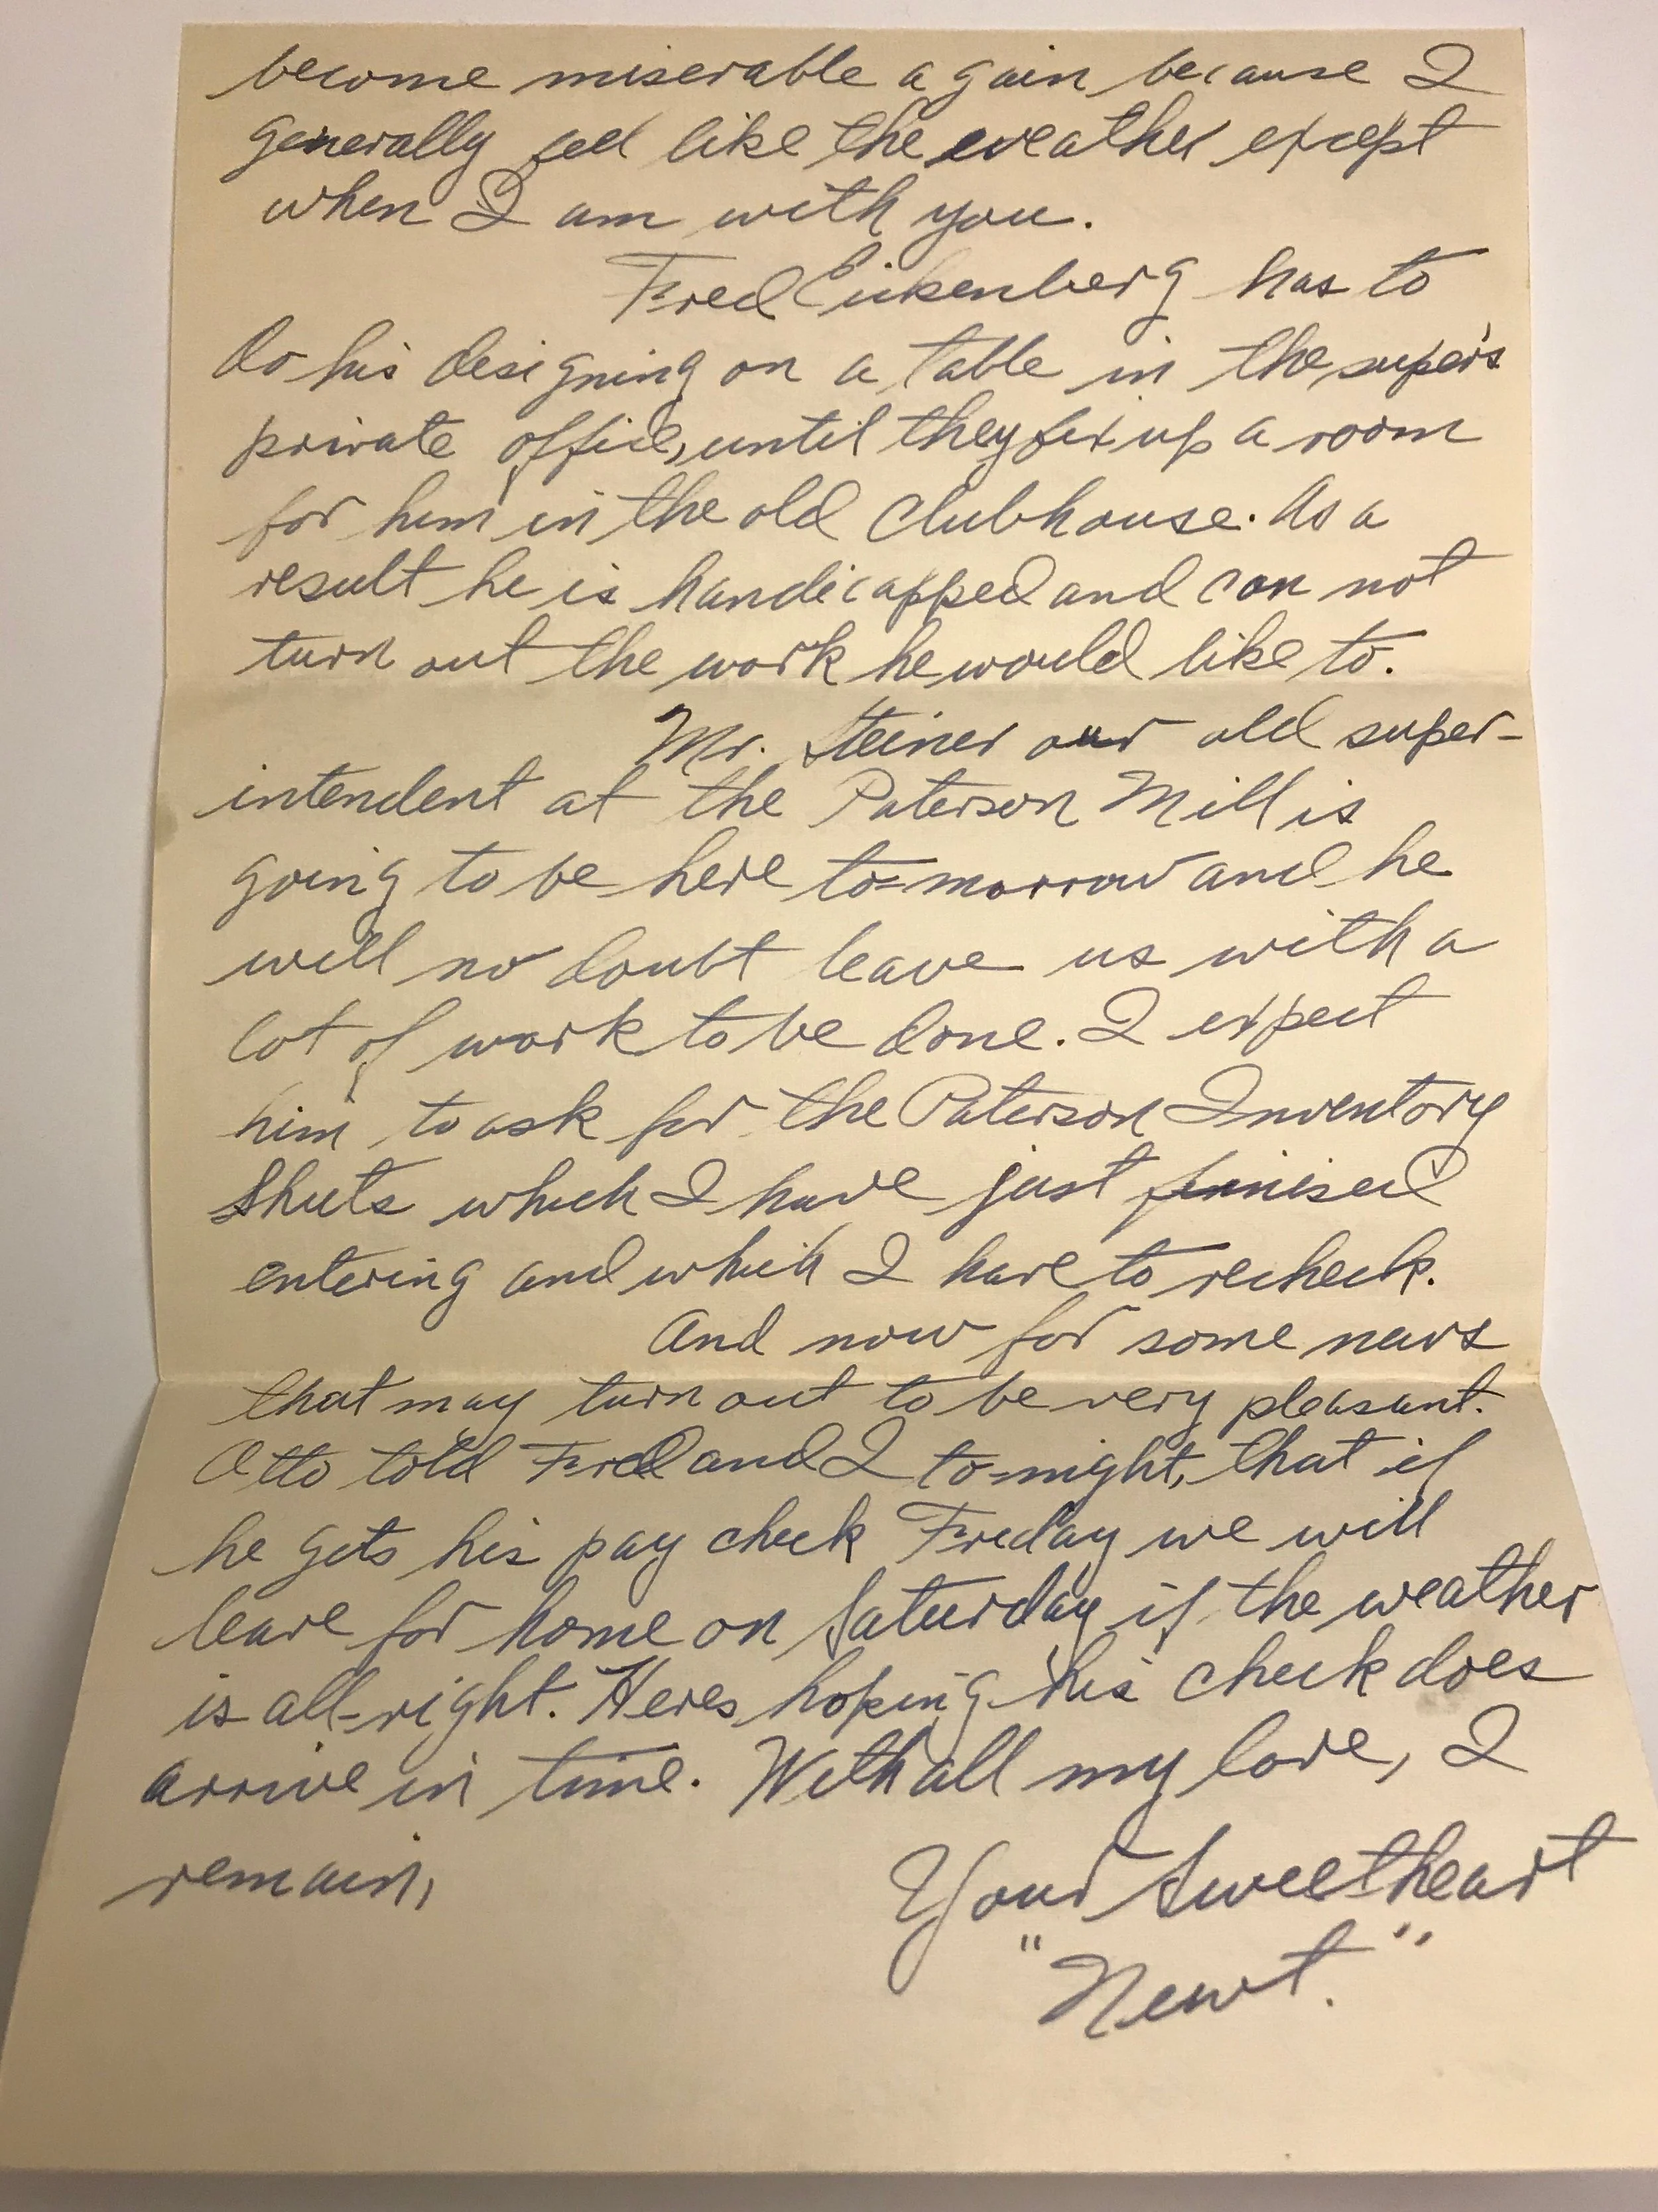 become miserable again because I
generally feel like the weather except
when I am with you.
Fred Eickenberg has to
do his designing on a table in the super's
private office, until they fix up a room
for him in the old Clubhouse. As a
result he is handicapped and can not
turn out the work he would like to.
Mr. Steiner our old super-
intendent at the Paterson Mill is
going to be here to-morrow and he
will no doubt leave us with a
lot of work to be done. I expect
him to ask for the Paterson Inventory
Sheets which I have just finised
entering and which I have to recheck.
And now for some news
that may turn out to be very pleasant.
Otto told Fred and I to-night, that if
he gets his pay check Friday we will
leave for home on Saturday if the weather
is all-right. Heres hoping his check does
arrive in time. With all my love, I
remain,
Your Sweetheart
"Newt."